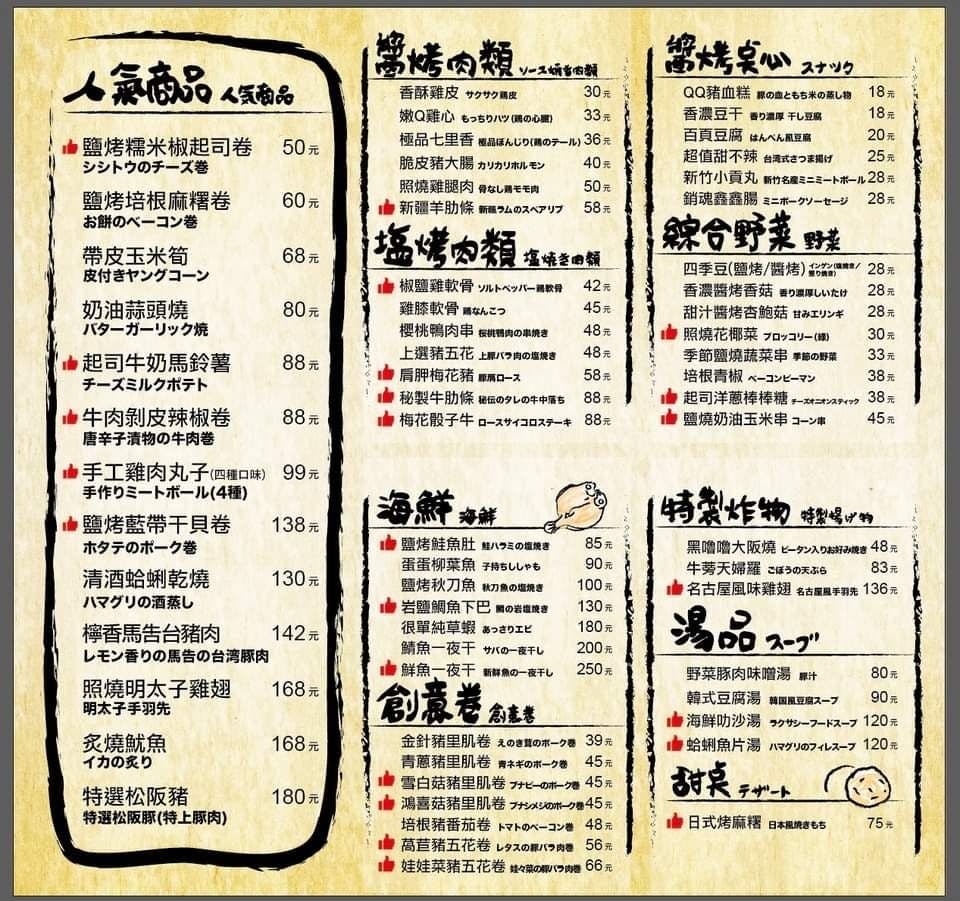 人氣商品 人気商品
鹽烤糯米椒起司卷 50元
シシトウのチーズ巻
鹽烤培根麻糬卷 60元
お餅のベーコン巻
帶皮玉米筍 68元
皮付きヤングコーン
奶油蒜頭燒 80元
バターガーリック焼
起司牛奶馬鈴薯 88元
チーズミルクポテト
牛肉剝皮辣椒卷 88元
唐辛子漬物の牛肉巻
手工雞肉丸子(四種口味) 99元
手作りミートボール(4種)
鹽烤藍帶干貝卷 138元
ホタテのポーク巻
清酒蛤蜊乾燒 130元
ハマグリの酒蒸し
檸香馬告台豬肉 142元
レモン香りの馬告の台湾豚肉
照燒明太子雞翅 168元
明太子手羽先
炙燒魷魚 168元
イカの炙り
特選松阪豬 180元
特選松阪豚(特上豚肉)
醬烤肉類 ソース焼き肉類
香酥雞皮 サクサク鶏皮 30元
嫩Q雞心 もっちりハツ(鶏の心臓) 33元
極品七里香 極品ぼんじり(鶏のテール) 36元
脆皮豬大腸 カリカリホルモン 40元
照燒雞腿肉 骨なし鶏モモ肉 50元
新疆羊肋條 新疆ラムのスペアリブ 58元
塩烤肉類 塩焼き肉類
椒鹽雞軟骨 ソルトペッパー鶏軟骨 42元
雞膝軟骨 鶏なんこつ 45元
櫻桃鴨肉串 桜桃鴨肉の串焼き 48元
上選豬五花 上豚バラ肉の塩焼き 48元
肩胛梅花豬 豚肩ロース 58元
秘製牛肋條 秘伝のタレの牛中落ち 88元
梅花骰子牛 ロースサイコロステーキ 88元
海鮮 海鮮
鹽烤鮭魚肚 鮭ハラミの塩焼き 85元
蛋蛋柳葉魚 子持ちししゃも 90元
鹽烤秋刀魚 秋刀魚の塩焼き 100元
岩鹽鯛魚下巴 鯛の岩塩焼き 130元
很單純草蝦 あっさりエビ 180元
鯖魚一夜干 サバの一夜干し 200元
鮮魚一夜干 新鮮魚の一夜干し 250元
創意卷 創意巻
金針豬里肌卷 えのき茸のポーク巻 39元
青蔥豬里肌卷 青ネギのポーク巻 45元
雪白菇豬里肌卷 ブナピーのポーク巻 45元
鴻喜菇豬里肌卷 ブナシメジのポーク巻 45元
培根豬番茄卷 トマトのベーコン巻 48元
萵苣豬五花卷 レタスの豚バラ肉巻 56元
娃娃菜豬五花卷 娃々菜の豚バラ肉巻 66元
醬烤點心 スナック
QQ豬血糕 豚の血ともち米の蒸し物 18元
香濃豆干 香り濃厚 干し豆腐 18元
百頁豆腐 はんぺん風豆腐 20元
超值甜不辣 台湾式さつま揚げ 25元
新竹小貢丸 新竹名産ミニミートボール 28元
銷魂鑫鑫腸 ミニポークソーセージ 28元
綜合野菜 野菜
四季豆(鹽烤/醬烤) インゲン(塩焼き/照り焼き) 28元
香濃醬烤香菇 香り濃厚しいたけ 28元
甜汁醬烤杏鮑菇 甘みエリンギ 28元
照燒花椰菜 ブロッコリー(緑) 30元
季節鹽燒蔬菜串 季節の野菜 33元
培根青椒 ベーコンピーマン 38元
起司洋蔥棒棒糖 チーズオニオンスティック 38元
鹽燒奶油玉米串 コーン串 45元
特製炸物 特製揚げ物
黑嚕嚕大阪燒 ピータン入りお好み焼き 48元
牛蒡天婦羅 ごぼうの天ぷら 83元
名古屋風味雞翅 名古屋風手羽先 136元
湯品 スープ
野菜豚肉味噌湯 豚汁 80元
韓式豆腐湯 韓国風豆腐スープ 90元
海鮮叻沙湯 ラクサシーフードスープ 120元
蛤蜊魚片湯 ハマグリのフィレスープ 120元
甜點 デザート
日式烤麻糬 日本風焼きもち 75元